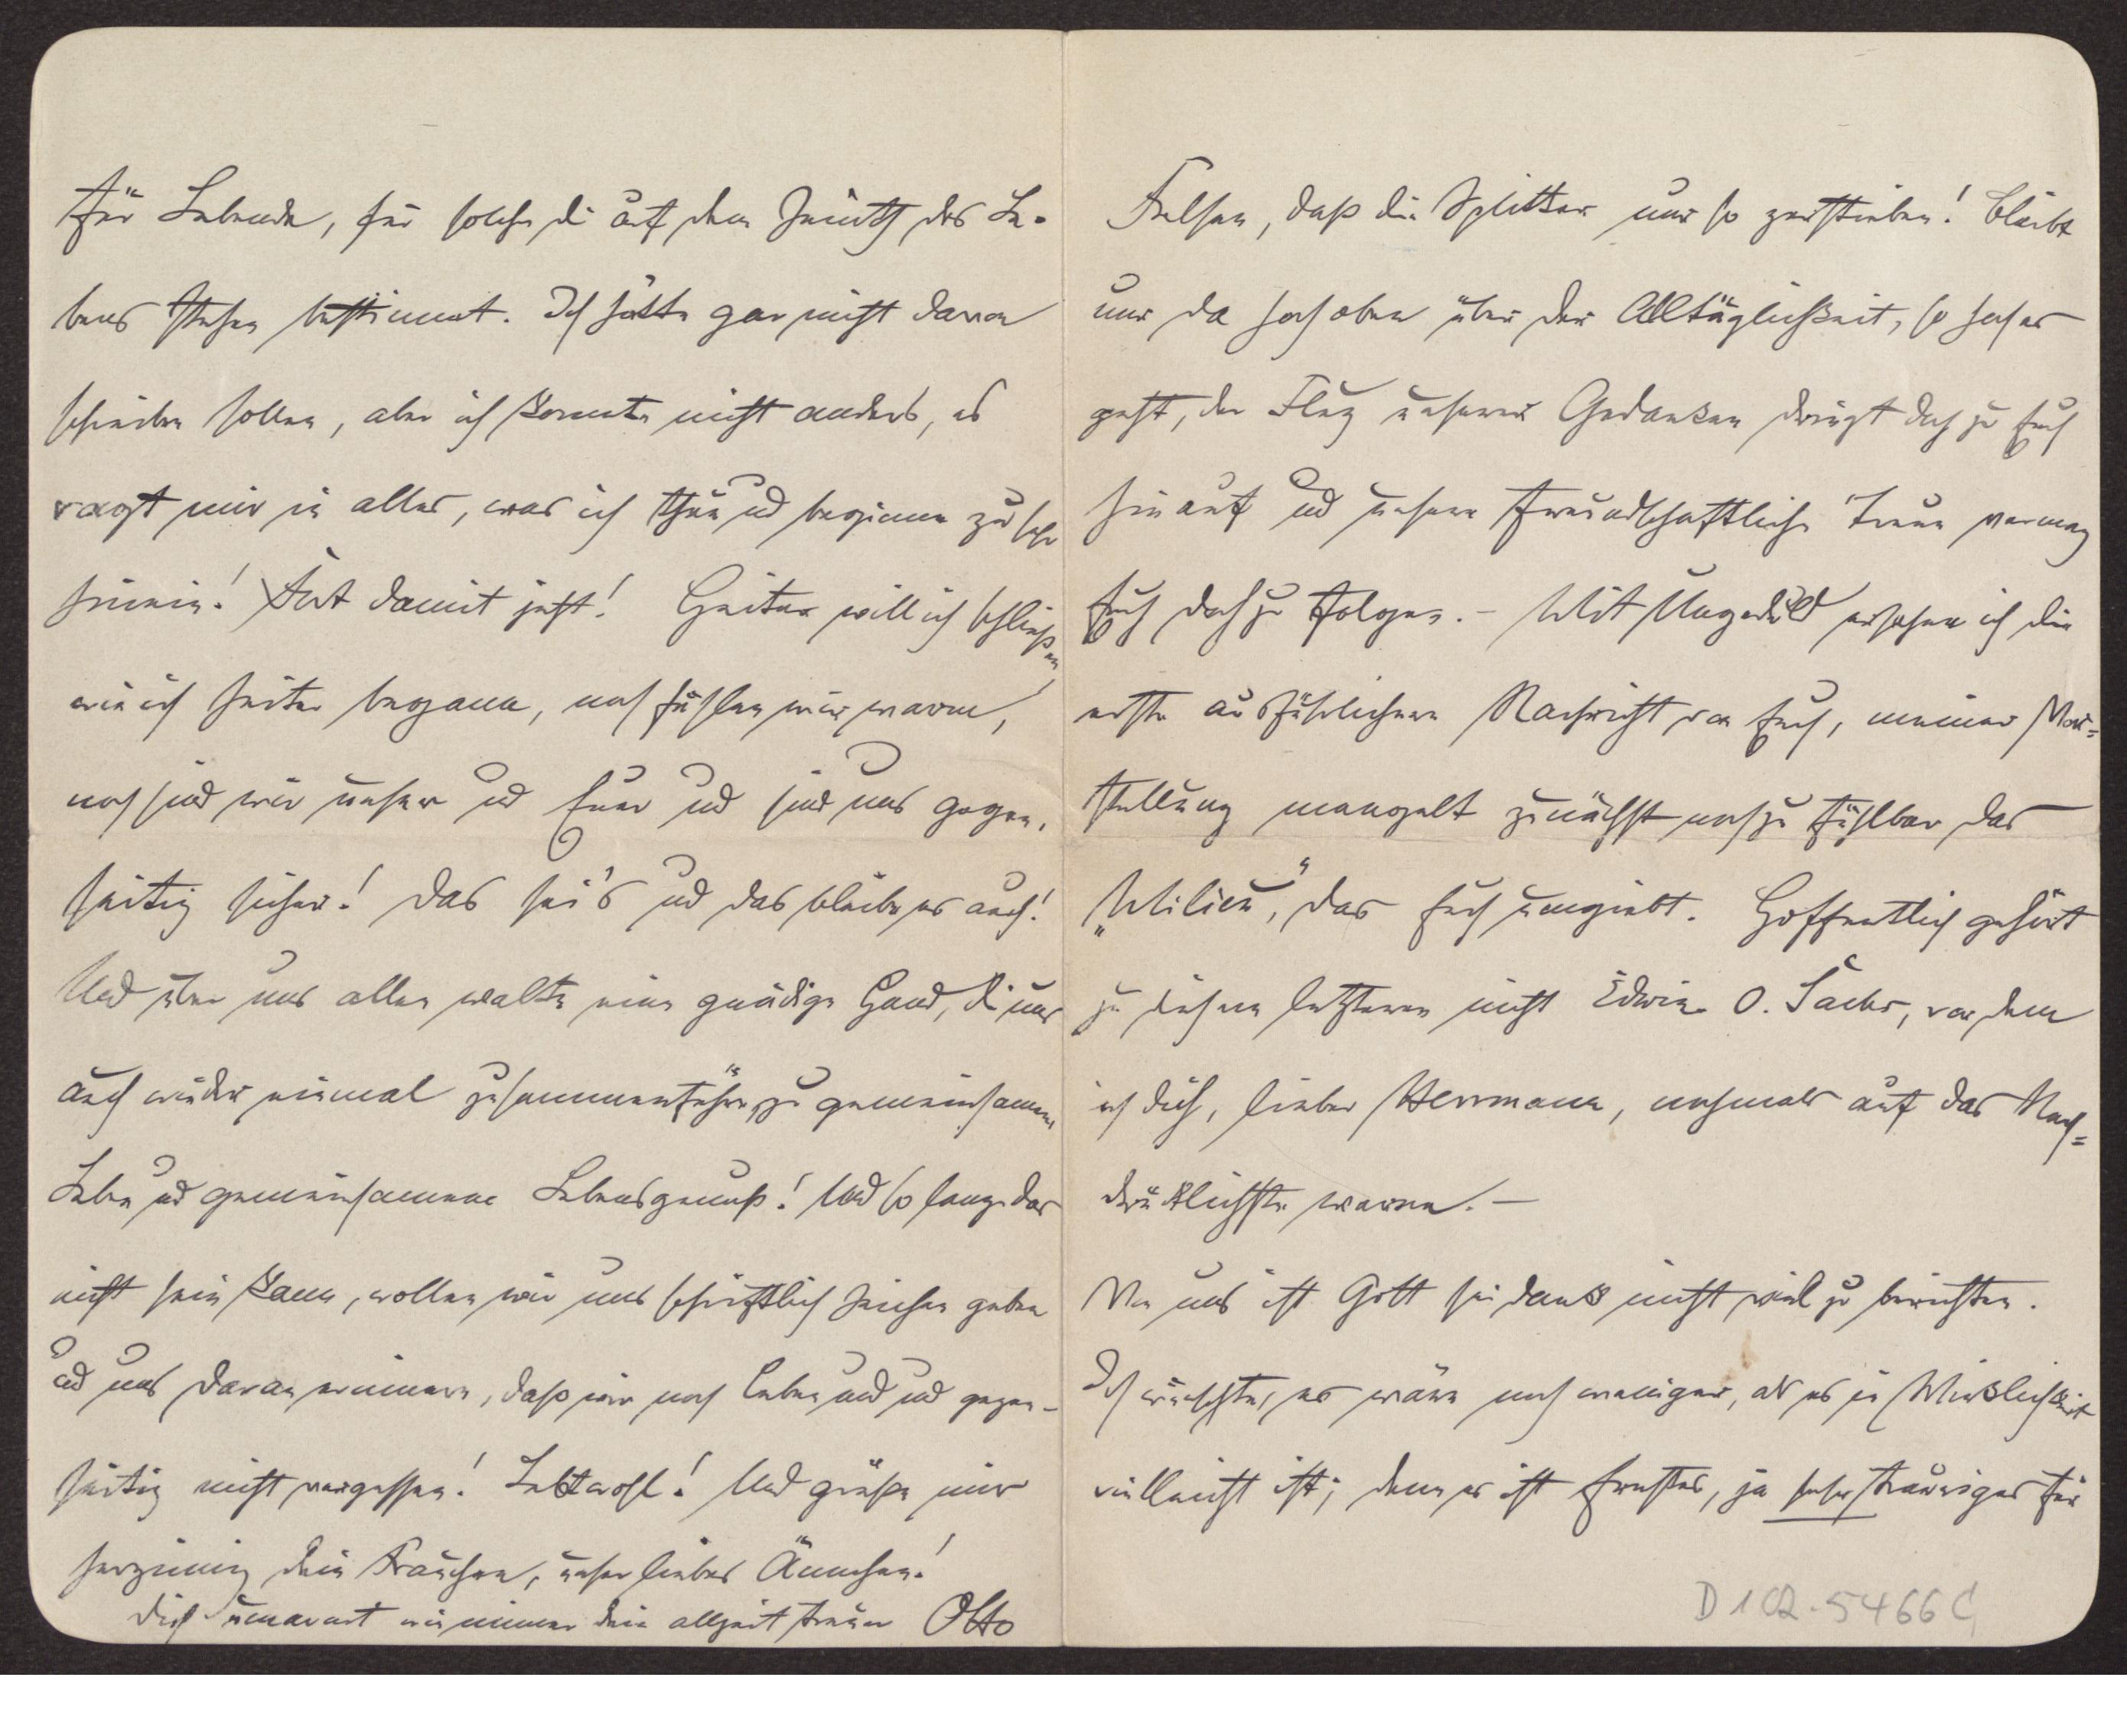 für Lebende, für solche die auf dem Zenith des Le-
bens stehen bestimmt. Ich hätte gar nicht davon
schreiben sollen, aber ich konnte nicht anders, es
ragt mir in alles, was ich thue und beginne zu sehr
hinein! Fort damit jetzt! Heiter will ich schließen
wie ich heiter begann, noch fühlen wir warm,
noch sind wir unser und Euer und sind uns gegen-
seitig sicher! Das sei's und das bleibe es auch!
Und über uns allen walte eine gnädige Hand, die uns
auch wieder einmal zusammenführe, zu gemeinsamem
Leben und gemeinsamem Lebensgenuß! Und so lange das
nicht sein kann, wollen wir uns schriftlich Zeichen geben
und uns daran erinnern, daß wir noch leben und uns gegen-
seitig nicht vergessen! Lebt wohl! Und grüße mir
herzinnig Dein Frauchen, unser liebes Ännchen!
Dich umarmt wie immer Dein allzeit treuer Otto
Felsen, daß die Splitter nur so zerstieben! Bleibt
nur da hoch oben über der Alltäglichkeit, so hoch es
geht, der Flug unserer Gedanken dringt doch zu Euch
hinauf und unsere freundschaftliche Treue vermag
Euch doch zu folgen. – Mit Ungeduld ersehne ich die
erste ausführlichere Nachricht von Euch, meiner Vor=
stellung mangelt zunächst noch zu fühlbar das
„Milieu", das Euch umgiebt. Hoffentlich gehört
zu diesem letzteren nicht Edwin O. Sachs, vor dem
ich Dich, lieber Herrmann, nochmals auf das Nach=
drücklichste warne. –
Von uns ist Gott sei dank nicht viel zu berichten.
Ich wünschte, es wäre noch weniger, als es in Wirklichkeit
vielleicht ist; denn es ist Ernstes, ja sehr Trauriges für
D 102.5466 C